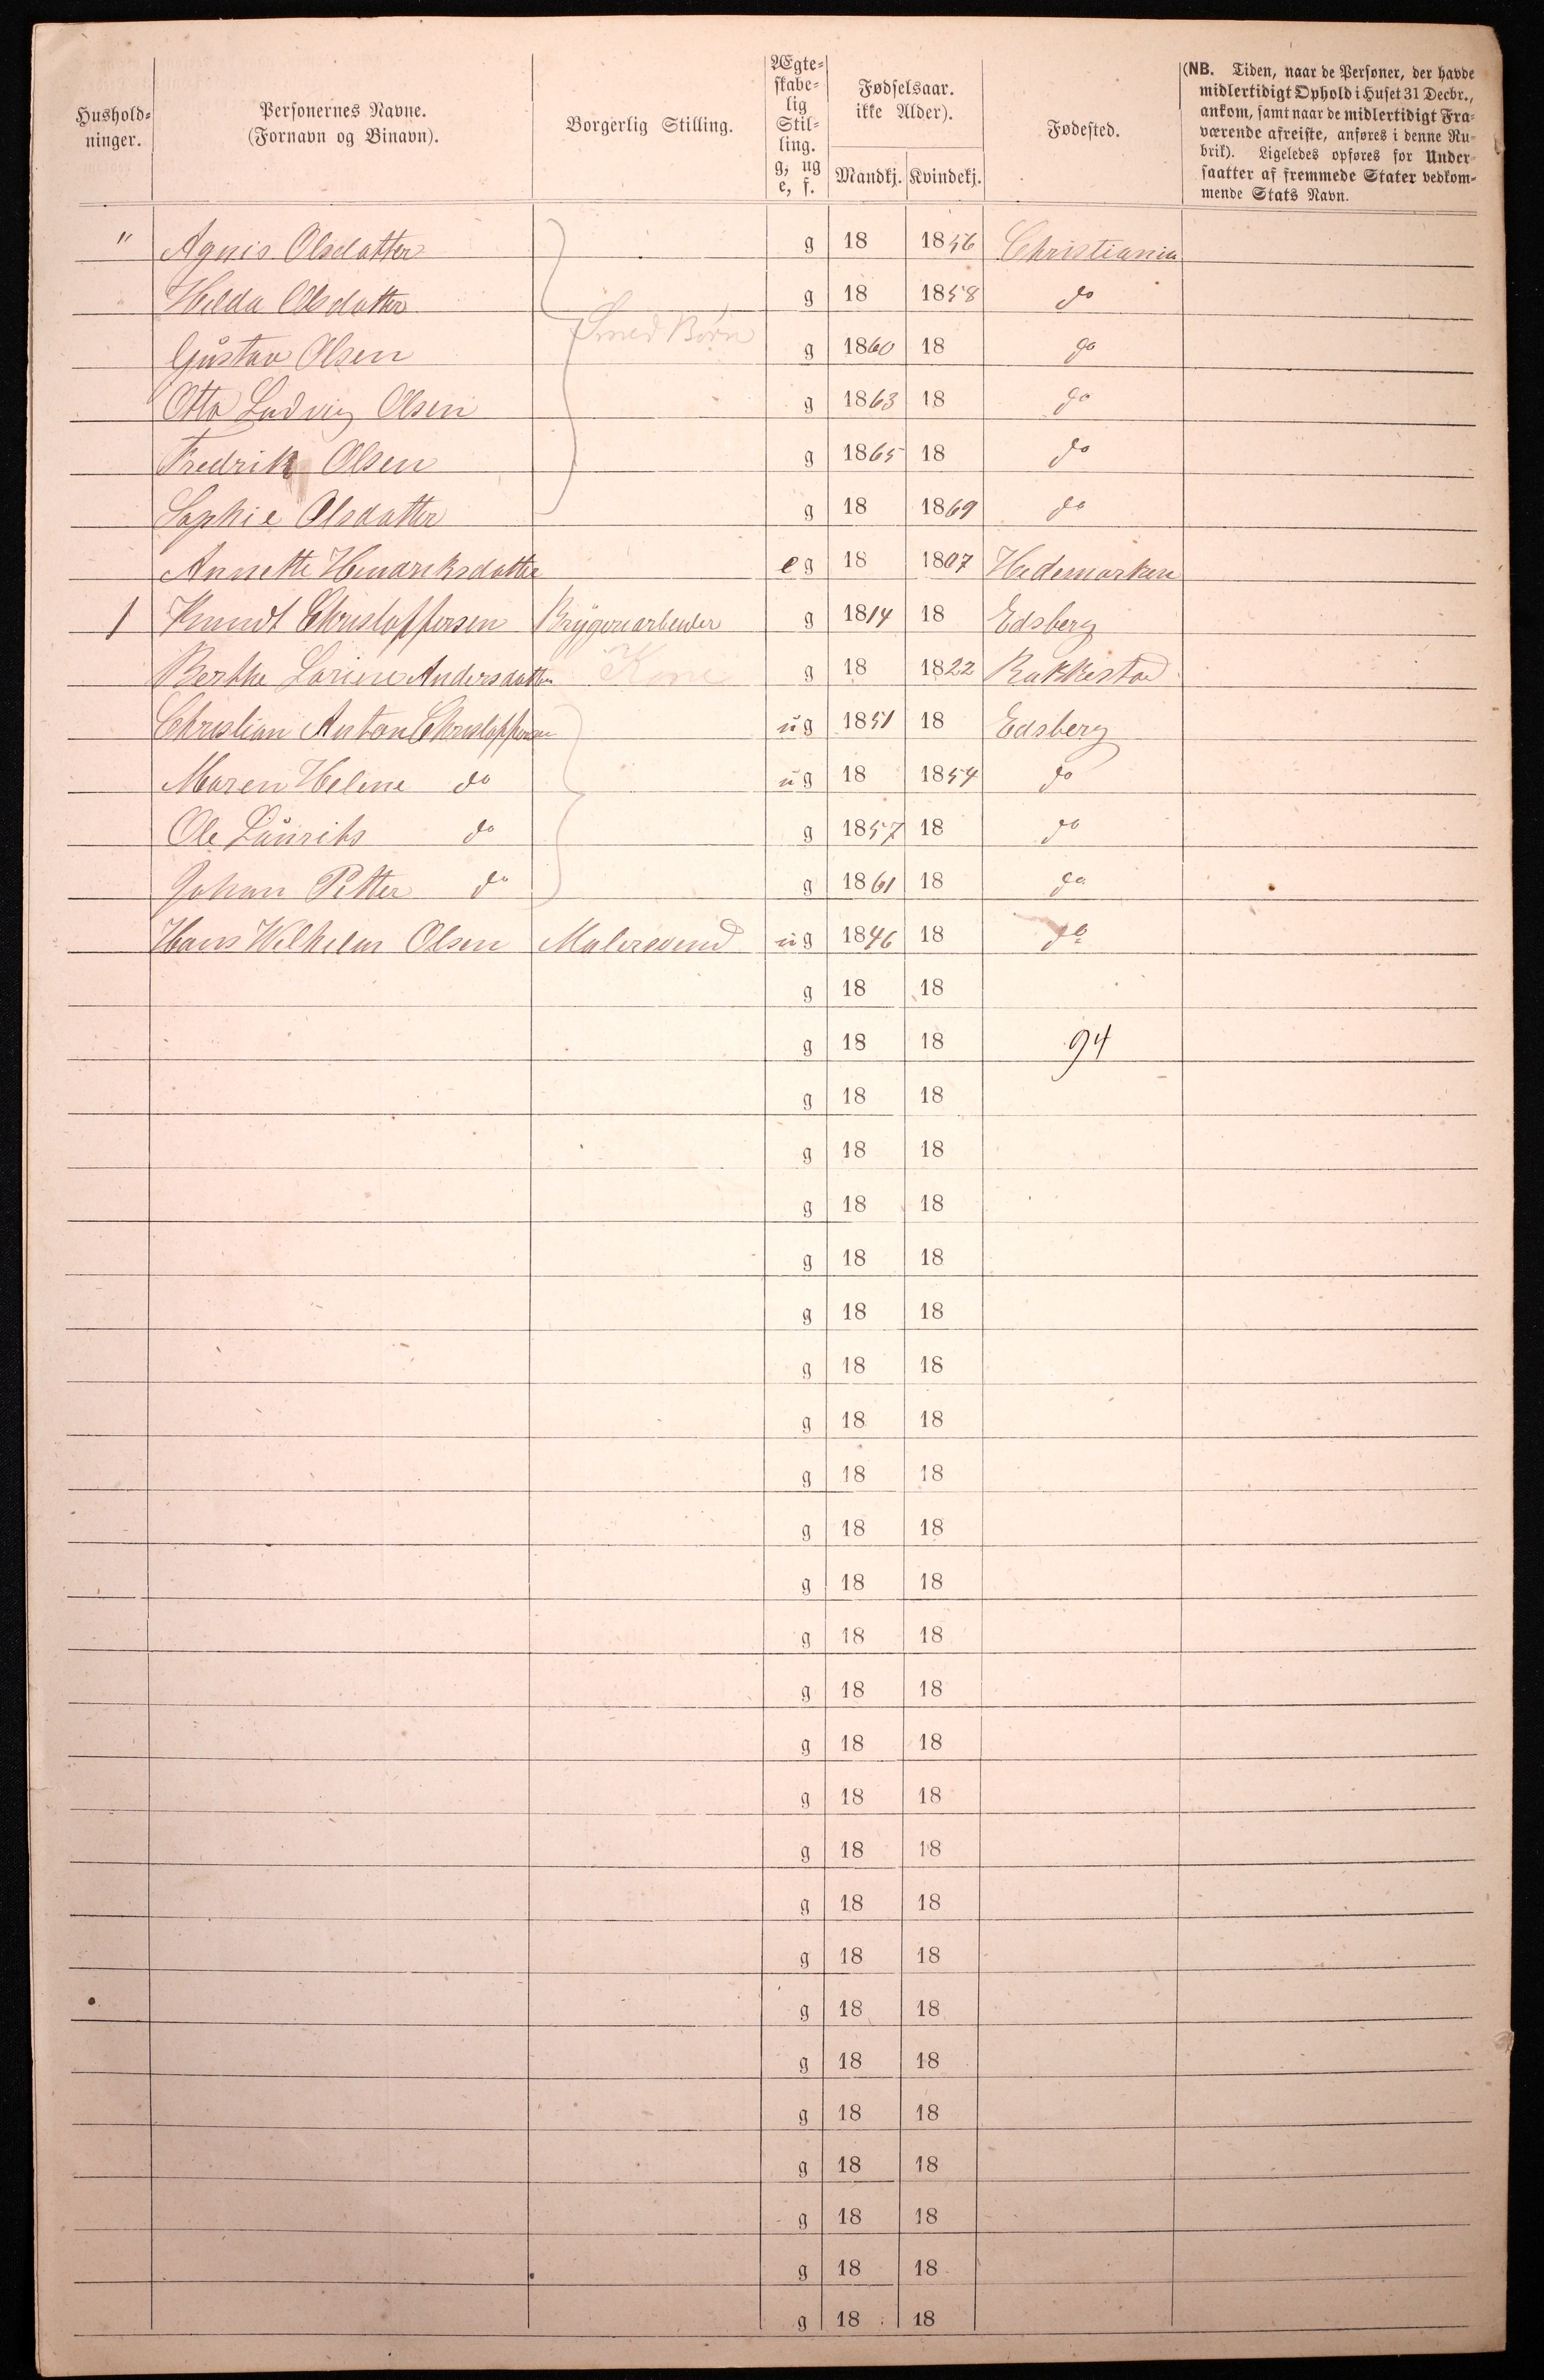 Hushold-
ninger.
Personernes Navne.
(Fornavn og Binavn).
Borgerlig Stilling.
Ægte-
skabe-
lig
Stil-
ling.
g, ug
e, f.
Fødselsaar.
ikke Alder).
Mandkj. Kvindekj.
Fødested.
(NB. Tiden, naar de Personer, der havde
midlertidigt Ophold i Huset 31 Decbr.,
ankom, samt naar de midlertidigt Fra-
værende afreiste, anføres i denne Ru-
brik). Ligeledes opføres for Under-
saatter af fremmede Stater vedkom-
mende Stats Navn.
" Agnis Olsdatter g 18 1856 Christiania
Hilda Olsdatter g 18 1858 do
Smed Børn
Gustav Olsen g 1860 18 do
Otto Ludvig Olsen g 1863 18 do
Fredrik Olsen g 1865 18 do
Sophie Olsdatter g 18 1869 do
Annette Hendriksdatter eg 18 1807 Hedemarken
1 Knudt Christoffersen Bryggeriarbeider g 1814 18 Edsberg
Berthe Larine Andersdatter Kone g 18 1822 Rakkestad
Christian Anton Christoffersen ug 1851 18 Edsberg
Maren Helene do ug 18 1854 do
Ole Laurits do g 1857 18 do
Johan Petter do g 1861 18 do
Hans Wilhelm Olsen Malersvend ug 1846 18 do
g 18 18
g 18 18 94
g 18 18
g 18 18
g 18 18
g 18 18
g 18 18
g 18 18
g 18 18
g 18 18
g 18 18
g 18 18
g 18 18
g 18 18
g 18 18
g 18 18
g 18 18
g 18 18
g 18 18
g 18 18
g 18 18
g 18 18
g 18 18
g 18 18
g 18 18
g 18 18